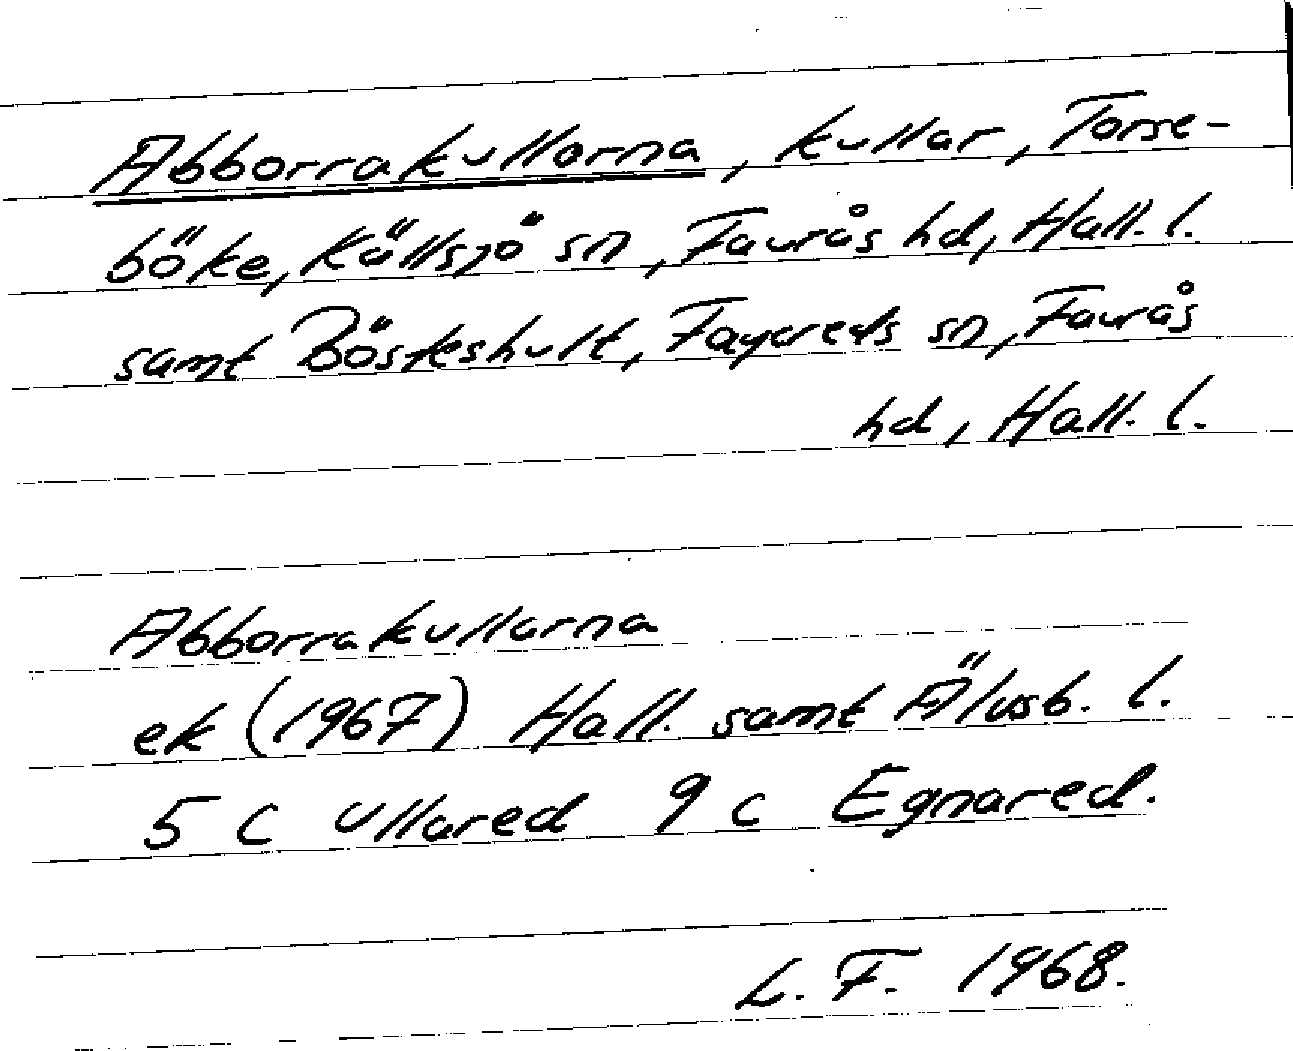 Abborrakullarna, kullar, Torse-
böke, Källsjö sn, Faurås hd, Hall. l.
samt Bösteshult, Fagereds sn, Faurås
hd, Hall. l.
Abborrakullarna
ek (1967) Hall. samt Älvsb. l.
5 C Ullared 9 c Egnared.
L. F. 1968.